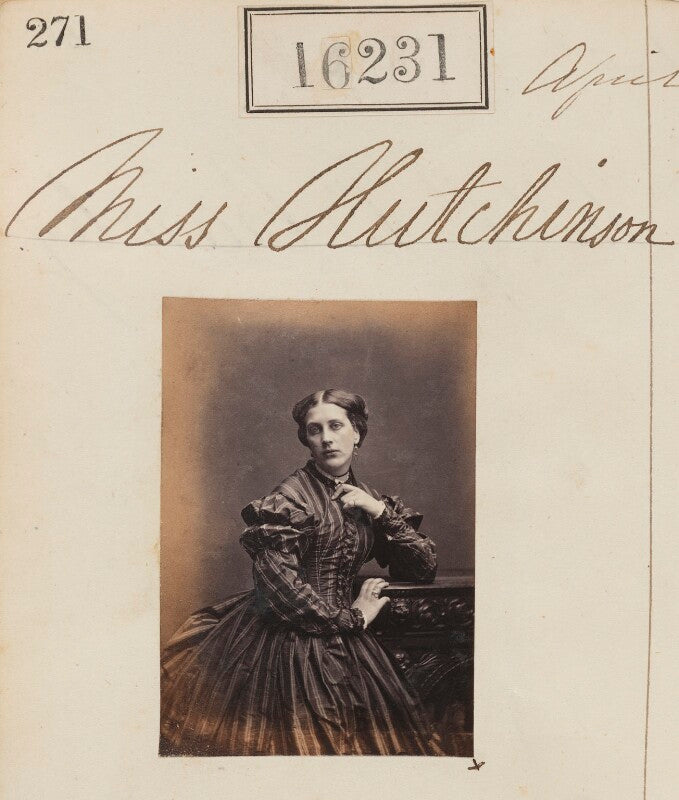 271
16231
April
Miss Hutchinson
x